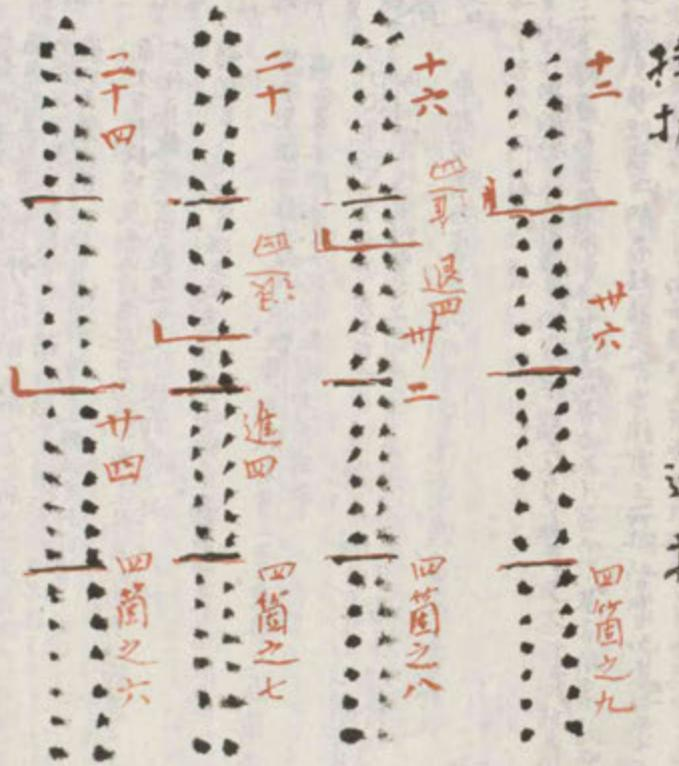 十二
卅六
四箇之九
十六
進四
退四
卅二
四箇之八
二十
退四
進四
四箇之七
二十四
廿四
四箇之六